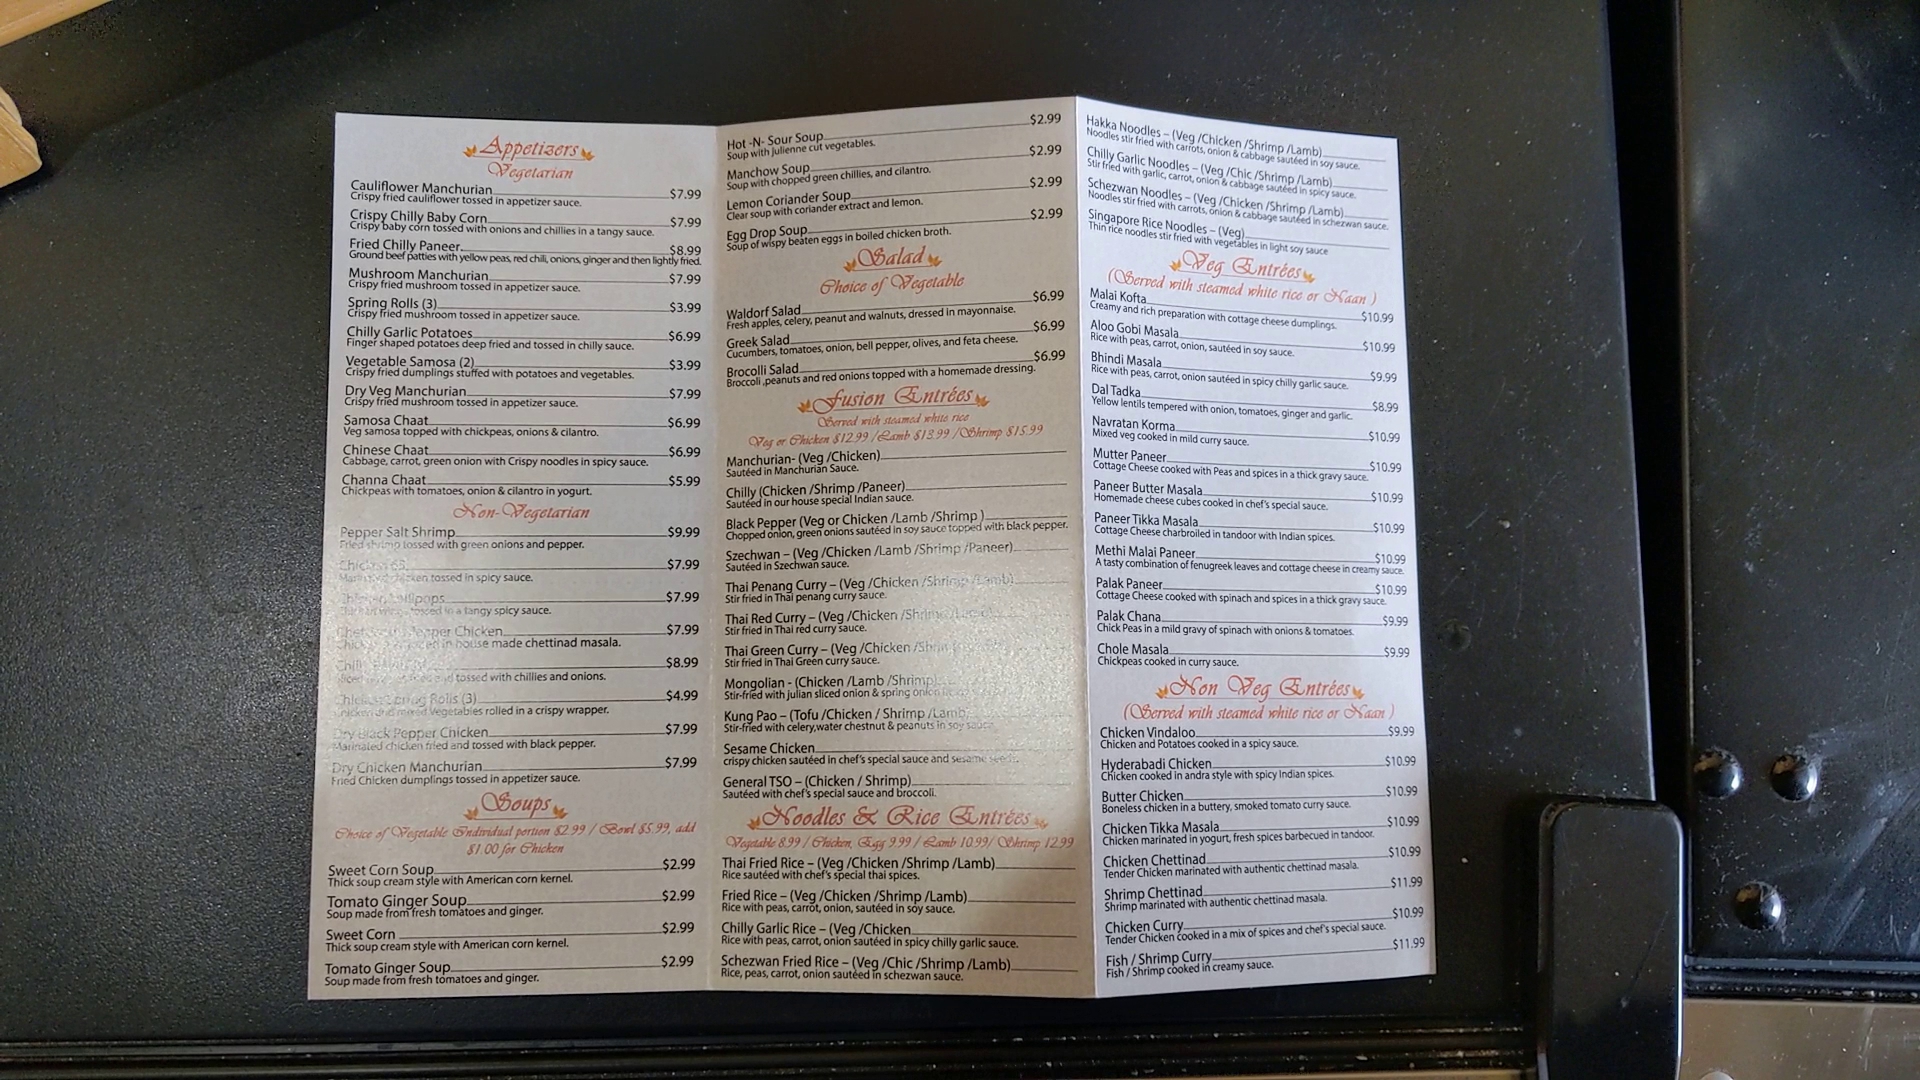 Appetizers
Vegetarian
Cauliflower Manchurian $7.99
Crispy fried cauliflower tossed in appetizer sauce.
Crispy Chilly Baby Corn $7.99
Crispy baby corn tossed with onions and chillies in a tangy sauce.
Fried Chilly Paneer $8.99
Ground beef patties with yellow peas, red chili, onions, ginger and then lightly fried.
Mushroom Manchurian $7.99
Crispy fried mushroom tossed in appetizer sauce.
Spring Rolls (3) $3.99
Crispy fried mushroom tossed in appetizer sauce.
Chilly Garlic Potatoes $6.99
Finger shaped potatoes deep fried and tossed in chilly sauce.
Vegetable Samosa (2) $3.99
Crispy fried dumplings stuffed with potatoes and vegetables.
Dry Veg Manchurian $7.99
Crispy fried mushroom tossed in appetizer sauce.
Samosa Chaat $6.99
Veg samosa topped with chickpeas, onions & cilantro.
Chinese Chaat $6.99
Cabbage, carrot, green onion with Crispy noodles in spicy sauce.
Channa Chaat $5.99
Chickpeas with tomatoes, onion & cilantro in yogurt.
Non-Vegetarian
Pepper Salt Shrimp $9.99
Fried shrimp tossed with green onions and pepper.
Chicken 65 $7.99
Marinated chicken tossed in spicy sauce.
Lollipops $7.99
tossed in a tangy spicy sauce.
Pepper Chicken $7.99
in house made chettinad masala.
$8.99
tossed with chillies and onions.
Chicken Spring Rolls (3) $4.99
Chicken and mixed Vegetables rolled in a crispy wrapper.
Dry Black Pepper Chicken $7.99
Marinated chicken fried and tossed with black pepper.
Dry Chicken Manchurian $7.99
Fried Chicken dumplings tossed in appetizer sauce.
Soups
Choice of Vegetable Individual portion $2.99 / Bowl $5.99, add
$1.00 for Chicken
Sweet Corn Soup $2.99
Thick soup cream style with American corn kernel.
Tomato Ginger Soup $2.99
Soup made from fresh tomatoes and ginger.
Sweet Corn $2.99
Thick soup cream style with American corn kernel.
Tomato Ginger Soup $2.99
Soup made from fresh tomatoes and ginger.
Hot -N- Sour Soup $2.99
Soup with Julienne cut vegetables.
Manchow Soup $2.99
Soup with chopped green chillies, and cilantro.
Lemon Coriander Soup $2.99
Clear soup with coriander extract and lemon.
Egg Drop Soup $2.99
Soup of wispy beaten eggs in boiled chicken broth.
Salad
Choice of Vegetable
Waldorf Salad $6.99
Fresh apples, celery, peanut and walnuts, dressed in mayonnaise.
Greek Salad $6.99
Cucumbers, tomatoes, onion, bell pepper, olives, and feta cheese.
Brocolli Salad $6.99
Broccoli ,peanuts and red onions topped with a homemade dressing.
Fusion Entrées
Served with steamed white rice
Veg or Chicken $12.99 / Lamb $13.99 / Shrimp $15.99
Manchurian- (Veg /Chicken)
Sautéed in Manchurian Sauce.
Chilly (Chicken /Shrimp /Paneer)
Sautéed in our house special Indian sauce.
Black Pepper (Veg or Chicken /Lamb /Shrimp )
Chopped onion, green onions sautéed in soy sauce topped with black pepper.
Szechwan – (Veg /Chicken /Lamb /Shrimp /Paneer)
Sautéed in Szechwan sauce.
Thai Penang Curry – (Veg /Chicken /Shrimp /Lamb)
Stir fried in Thai penang curry sauce.
Thai Red Curry – (Veg /Chicken /Shrimp /Lamb)
Stir fried in Thai red curry sauce.
Thai Green Curry – (Veg /Chicken
Stir fried in Thai Green curry sauce.
Mongolian - (Chicken /Lamb /Shrimp)
Stir-fried with julian sliced onion & spring onion
Kung Pao – (Tofu /Chicken / Shrimp /Lamb)
Stir-fried with celery,water chestnut & peanuts in soy sauce.
Sesame Chicken
crispy chicken sautéed in chef's special sauce and sesame seeds.
General TSO – (Chicken / Shrimp)
Sautéed with chef's special sauce and broccoli.
Noodles & Rice Entrées
Vegetable 8.99 / Chicken, Egg 9.99 / Lamb 10.99/ Shrimp 12.99
Thai Fried Rice – (Veg /Chicken /Shrimp /Lamb)
Rice sautéed with chef's special thai spices.
Fried Rice – (Veg /Chicken /Shrimp /Lamb)
Rice with peas, carrot, onion, sautéed in soy sauce.
Chilly Garlic Rice – (Veg /Chicken
Rice with peas, carrot, onion sautéed in spicy chilly garlic sauce.
Schezwan Fried Rice – (Veg /Chic /Shrimp /Lamb)
Rice, peas, carrot, onion sautéed in schezwan sauce.
Hakka Noodles – (Veg /Chicken /Shrimp /Lamb)
Noodles stir fried with carrots, onion & cabbage sautéed in soy sauce.
Chilly Garlic Noodles – (Veg /Chic /Shrimp /Lamb)
Stir fried with garlic, carrot, onion & cabbage sautéed in spicy sauce.
Schezwan Noodles – (Veg /Chicken /Shrimp /Lamb)
Noodles stir fried with carrots, onion & cabbage sautéed in schezwan sauce.
Singapore Rice Noodles – (Veg)
Thin rice noodles stir fried with vegetables in light soy sauce
Veg Entrées
(Served with steamed white rice or Naan )
Malai Kofta $10.99
Creamy and rich preparation with cottage cheese dumplings.
Aloo Gobi Masala $10.99
Rice with peas, carrot, onion, sautéed in soy sauce.
Bhindi Masala $9.99
Rice with peas, carrot, onion sautéed in spicy chilly garlic sauce.
Dal Tadka $8.99
Yellow lentils tempered with onion, tomatoes, ginger and garlic.
Navratan Korma $10.99
Mixed veg cooked in mild curry sauce.
Mutter Paneer $10.99
Cottage Cheese cooked with Peas and spices in a thick gravy sauce.
Paneer Butter Masala $10.99
Homemade cheese cubes cooked in chef's special sauce.
Paneer Tikka Masala $10.99
Cottage Cheese charbroiled in tandoor with Indian spices.
Methi Malai Paneer $10.99
A tasty combination of fenugreek leaves and cottage cheese in creamy sauce.
Palak Paneer $10.99
Cottage Cheese cooked with spinach and spices in a thick gravy sauce.
Palak Chana $9.99
Chick Peas in a mild gravy of spinach with onions & tomatoes.
Chole Masala $9.99
Chickpeas cooked in curry sauce.
Non Veg Entrées
(Served with steamed white rice or Naan )
Chicken Vindaloo $9.99
Chicken and Potatoes cooked in a spicy sauce.
Hyderabadi Chicken $10.99
Chicken cooked in andra style with spicy Indian spices.
Butter Chicken $10.99
Boneless chicken in a buttery, smoked tomato curry sauce.
Chicken Tikka Masala $10.99
Chicken marinated in yogurt, fresh spices barbecued in tandoor.
Chicken Chettinad $10.99
Tender Chicken marinated with authentic chettinad masala.
Shrimp Chettinad $11.99
Shrimp marinated with authentic chettinad masala.
Chicken Curry $10.99
Tender Chicken cooked in a mix of spices and chef's special sauce.
Fish / Shrimp Curry $11.99
Fish / Shrimp cooked in creamy sauce.